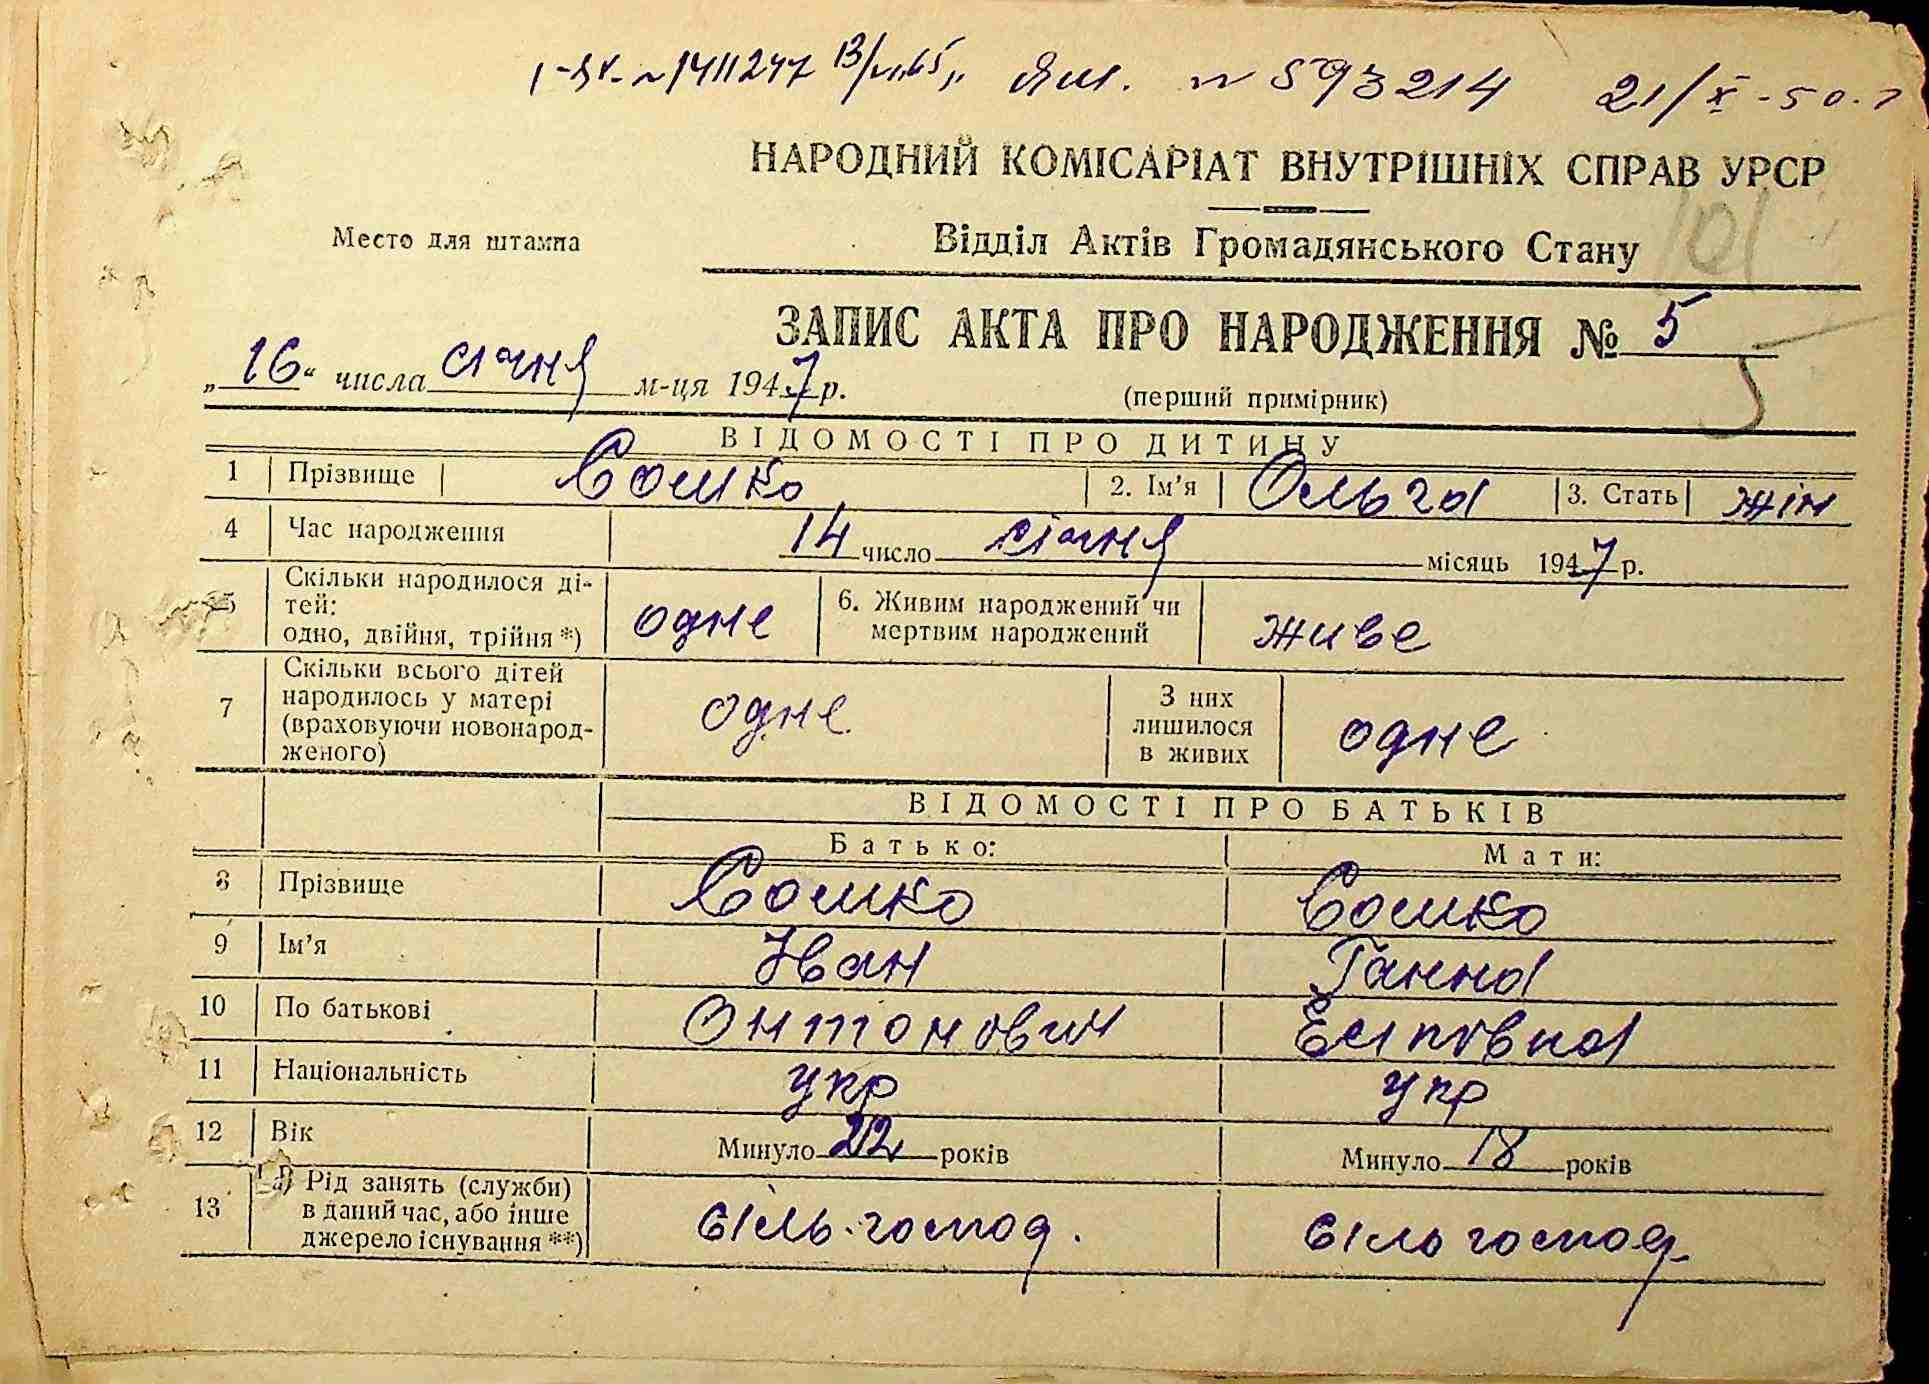 № 1411247 Ям. № 593214 21/X-50.
НАРОДНИЙ КОМІСАРІАТ ВНУТРІШНІХ СПРАВ УРСР
Место для штампа
Відділ Актів Громадянського Стану
101
ЗАПИС АКТА ПРО НАРОДЖЕННЯ № 5
5
„16“ числа січня м-ця 1947 р.
(перший примірник)
ВІДОМОСТІ ПРО ДИТИНУ
1 Прізвище Сошко 2. Ім'я Ольга 3. Стать жін
4 Час народження 14 число січня місяць 1947 р.
5 Скільки народилося ді-
тей:
одно, двійня, трійня *) одне 6. Живим народжений чи
мертвим народжений живе
7 Скільки всього дітей
народилось у матері
(враховуючи новонарод-
женого) одне З них
лишилося
в живих одне
ВІДОМОСТІ ПРО БАТЬКІВ
Батько: Мати:
8 Прізвище Сошко Сошко
9 Ім'я Іван Ганна
10 По батькові Онтонович Есипівна
11 Національність укр укр
12 Вік Минуло 22 років Минуло 18 років
13 а) Рід занять (служби)
в даний час, або інше
джерело існування **) сіль. господ. сіль господ